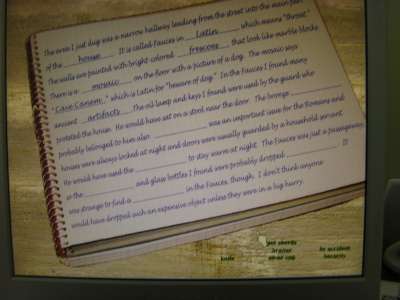 The area I just dug was a narrow hallway leading from the street into the main part
of the house. It is called Fauces in Latin, which means "throat."
The walls are painted with bright colored frescoes that look like marble blocks.
There is a mosaic on the floor with a picture of a dog. The mosaic says
"Cave Canem," which is Latin for "beware of dog." In the Fauces I found many
ancient artifacts. The oil lamp and keys I found were used by the guard who
protected the house. He would have sat on a stool near the door. The bronze
probably belonged to him also. was an important issue for the Romans and
houses were always locked at night and doors were usually guarded by a household servant.
He would have used the to stay warm at night. The Fauces was just a passageway,
so the and glass bottles I found were probably dropped. It
was strange to find a in the Fauces, though. I don't think anyone
would have dropped such an expensive object unless they were in a big hurry.
pot sherds
brazier
by accident
knife
silver cup
Security